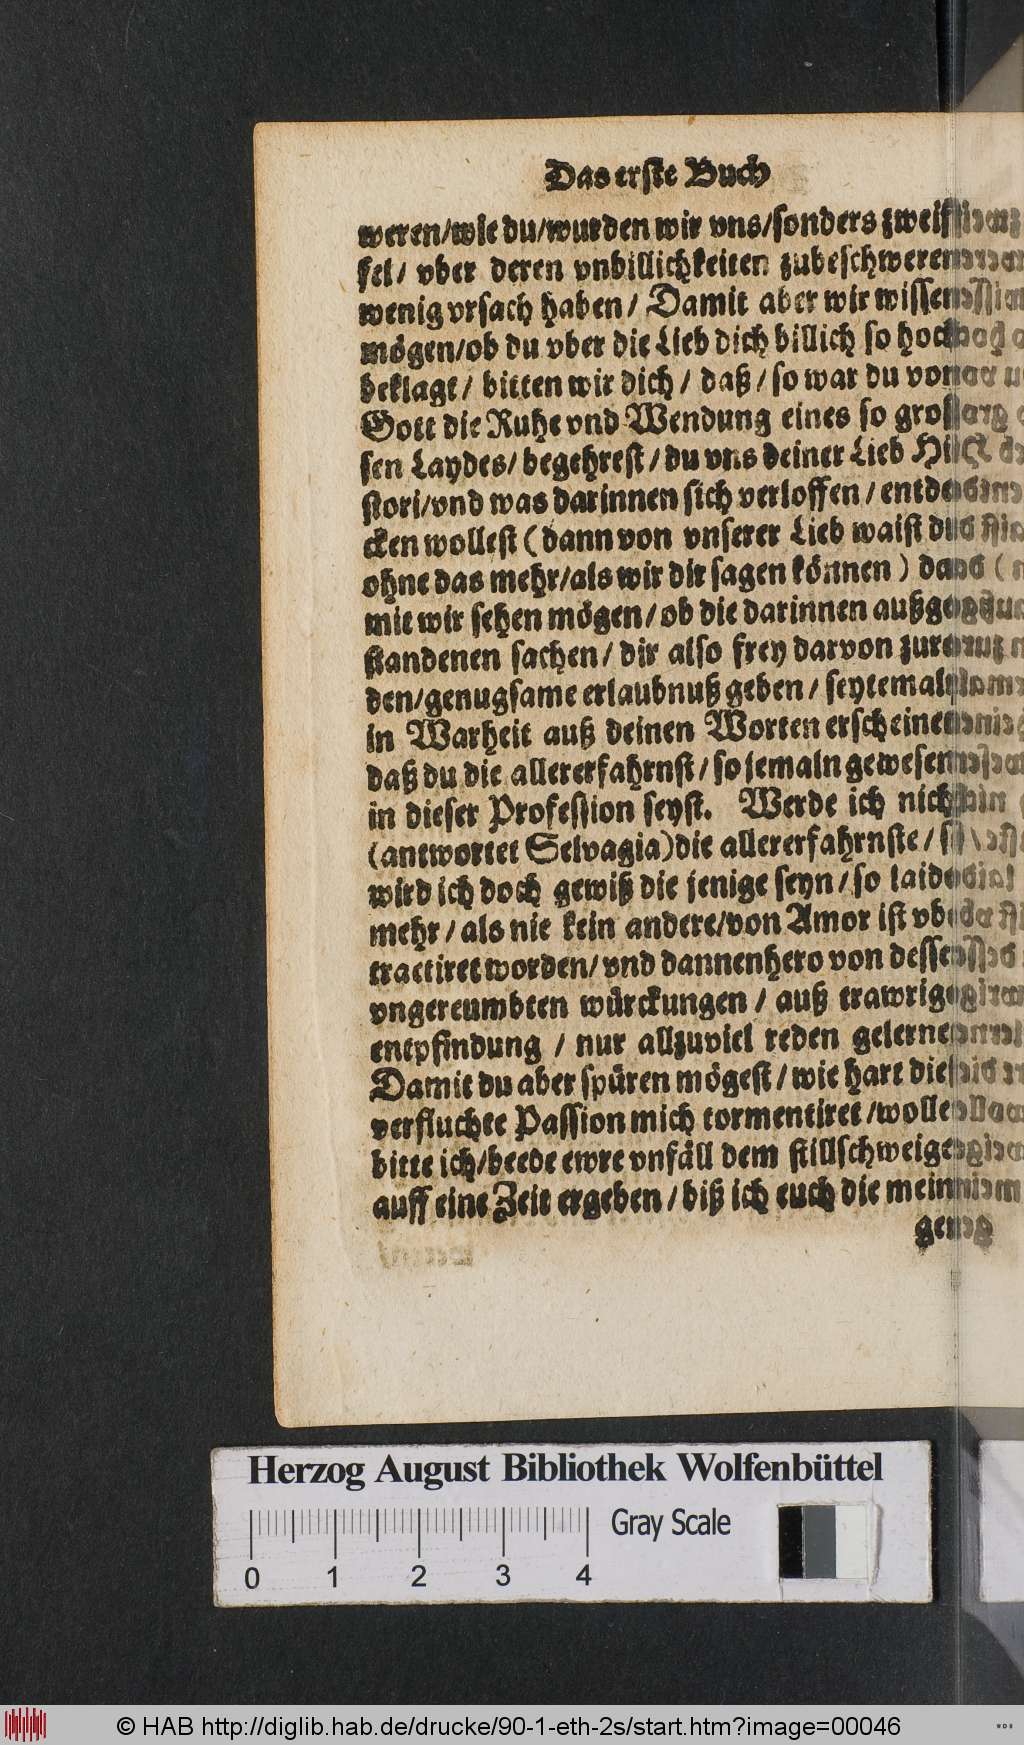 Das erste Buch
weren/wie du/wurden wir vns/sonders zweiff
fel/ vber deren vnbillichkeiten zubeschweren
wenig vrsach haben/ Damit aber wir wissen
mögen/ob du vber die Lieb dich billich so hoch
beklagt/ bitten wir dich/ daß/so war du von
Gott die Ruhe vnd Wendung eines so gros
sen Laydes/begehrest/du vns deiner Lieb Hi
stori/vnd was darinnen sich verloffen/entde
cken wollest (dann von vnserer Lieb waist du
ohne das mehr/als wir dir sagen können) da
mit wir sehen mögen/ob die darinnen außge
standenen sachen/dir also frey darvon zure
den/genugsame erlaubnuß geben/seytemal
in Warheit auß deinen Worten erscheinet
daß du die allererfahrnst/so jemaln gewesen
in dieser Profession seyst. Werde ich nicht
(antwortet Selvagia)die allererfahrnste/so
wird ich doch gewiß die jenige seyn/so laid
mehr/als nie kein andere/von Amor ist vbel
tractiret worden/vnd dannenhero von dessen
vngereumbten würckungen/auß trawriger
entpfindung/nur allzuviel reden gelernet
Damit du aber spüren mögest/wie hart die
verfluchte Passion mich tormentiret/wollet
bitte ich/beede ewre vnfäll dem stillschweigen
auff eine Zeit ergeben/biß ich euch die mein
Herzog August Bibliothek Wolfenbüttel
Gray Scale
0 1 2 3 4
© HAB http://diglib.hab.de/drucke/90-1-eth-2s/start.htm?image=00046